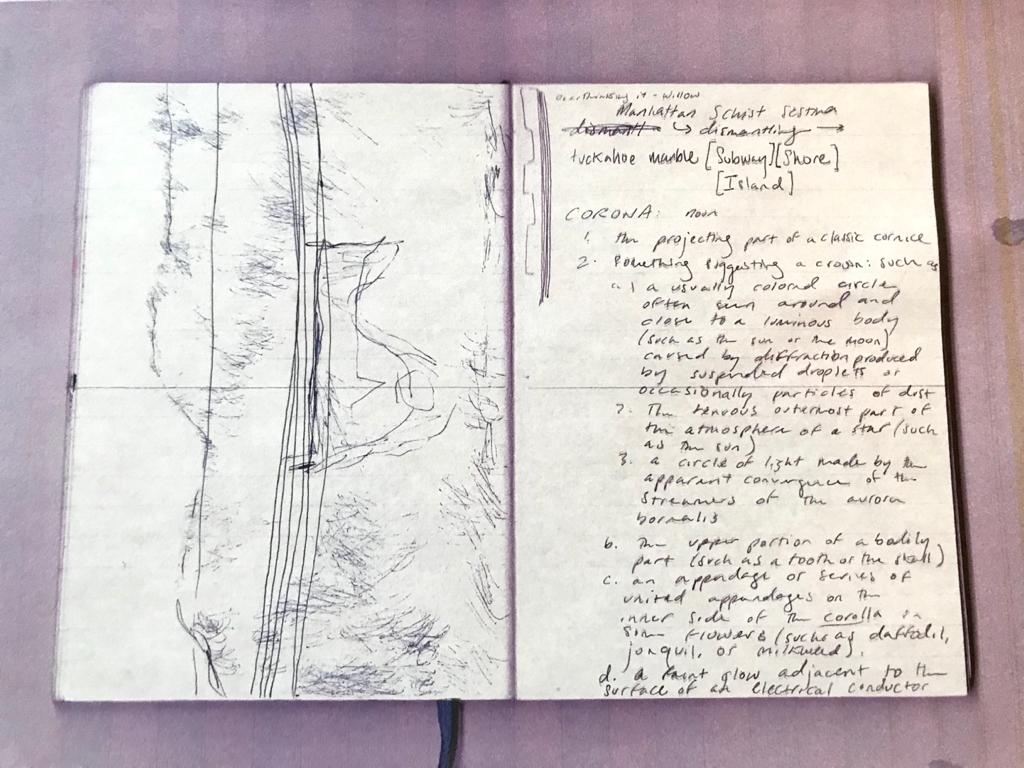 overthinking it - willow
Manhattan Schist
dismantl ↳ dismantling →
tuckahoe marble [Subway][Shore]
[Island]
CORONA: noun
1. the projecting part of a classic cornice
2. Something suggesting a crown: such as
a) a usually colored circle
often seen around and
close to a luminous body
(such as the sun or the moon)
caused by diffraction produced
by suspended droplets or
occasionally particles of dust
2. The tenuous outermost part of
the atmosphere of a star (such
as the sun)
3. a circle of light made by the
apparent convergence of the
streamers of the aurora
borealis
b. The upper portion of a bodily
part (such as a tooth or the skull)
c. an appendage or series of
united appendages on the
inner side of the corolla in
some flowers (such as daffodil,
jonquil, or milkweed).
d. a faint glow adjacent to the
surface of an electrical conductor